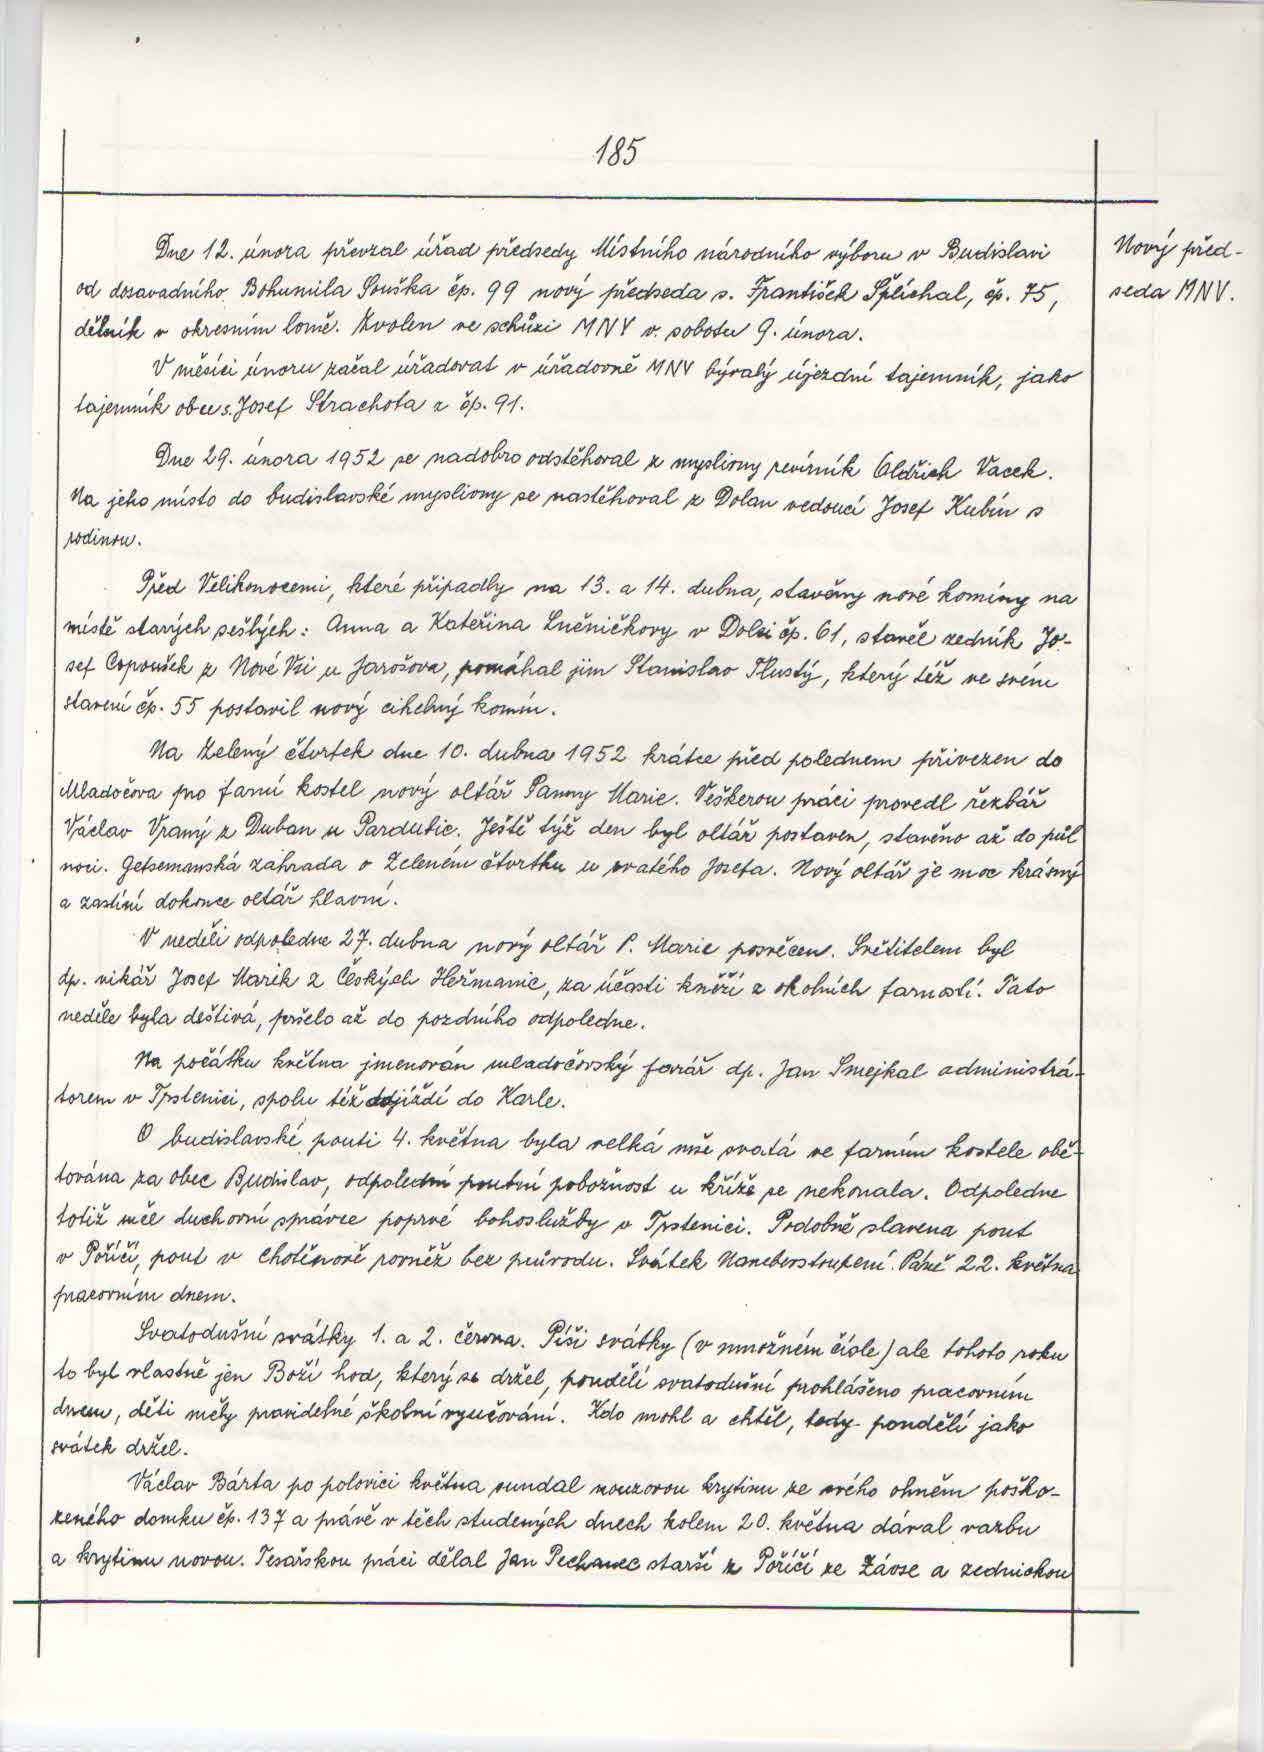 185
Dne 12. února převzal úřad předsedy Místního národního výboru v Budislavi
od dosavadního Bohumila Souška čp. 99 nový předseda s. František Šplíchal, čp. 75,
dělník v okresním lomě. Zvolen ve schůzi MNV v sobotu 9. února.
Nový před-
seda MNV.
V měsíci únoru začal úřadovat v úřadovně MNV bývalý újezdní tajemník, jako
tajemník obce s. Josef Strachota z čp. 91.
Dne 29. února 1952 se nadobro odstěhoval z myslivny revírník Oldřich Vacek.
Na jeho místo do budislavské myslivny se nastěhoval z Dolan vedoucí Josef Kubín s
rodinou.
Před Velikonocemi, které připadly na 13. a 14. dubna, stavěny nové komíny na
místě starých sešlých: Anna a Kateřina Lněničkovy v Dolci čp. 61, stavěl zedník Jo-
sef Copoušek z Nové Vsi u Jarošova, pomáhal jim Stanislav Tlustý, který též ve svém
stavení čp. 55 postavil nový cihelný komín.
Na Zelený čtvrtek dne 10. dubna 1952 krátce před polednem přivezen do
Mladočova pro farní kostel nový oltář Panny Marie. Veškerou práci provedl řezbář
Václav Vraný z Duban u Pardubic. Ještě týž den byl oltář postaven, stavěno až do půl
noci. Getsemanská zahrada o Zeleném čtvrtku u svatého Josefa. Nový oltář je moc krásný
a zastíní dokonce oltář hlavní.
V neděli odpoledne 27. dubna nový oltář P. Marie posvěcen. Světitelem byl
dp. vikář Josef Marek z Českých Heřmanic, za účasti kněží z okolních farností. Tato
neděle byla deštivá, pršelo až do pozdního odpoledne.
Na počátku května jmenován mladočovský farář dp. Jan Smejkal administrá-
torem v Trstenici, spolu též dojíždí do Karle.
O budislavské pouti 4. května byla velká mše svatá ve farním kostele obě-
tována za obec Budislav, odpolední poutní pobožnost u kříže se nekonala. Odpoledne
totiž měl duchovní správce poprvé bohoslužby v Trstenici. Podobně slavena pout
v Poříčí, pout v Chotěnově rovněž bez průvodu. Svátek Nanebevstoupení Páně 22. května
pracovním dnem.
Svatodušní svátky 1. a 2. června. Píši svátky (v množném čísle) ale tohoto roku
to byl vlastně jen Boží hod, který se držel, pondělí svatodušní prohlášeno pracovním
dnem, děti měly pravidelné školní vyučování. Kdo mohl a chtěl, tedy pondělí jako
svátek držel.
Václav Bárta po polovici května sundal nouzovou krytinu ze svého ohněm poško-
zeného domku čp. 137 a právě v těch studených dnech kolem 20. května dával vazbu
a krytinu novou. Tesařskou práci dělal Jan Pechanec starší z Poříčí ze Závse a zednickou